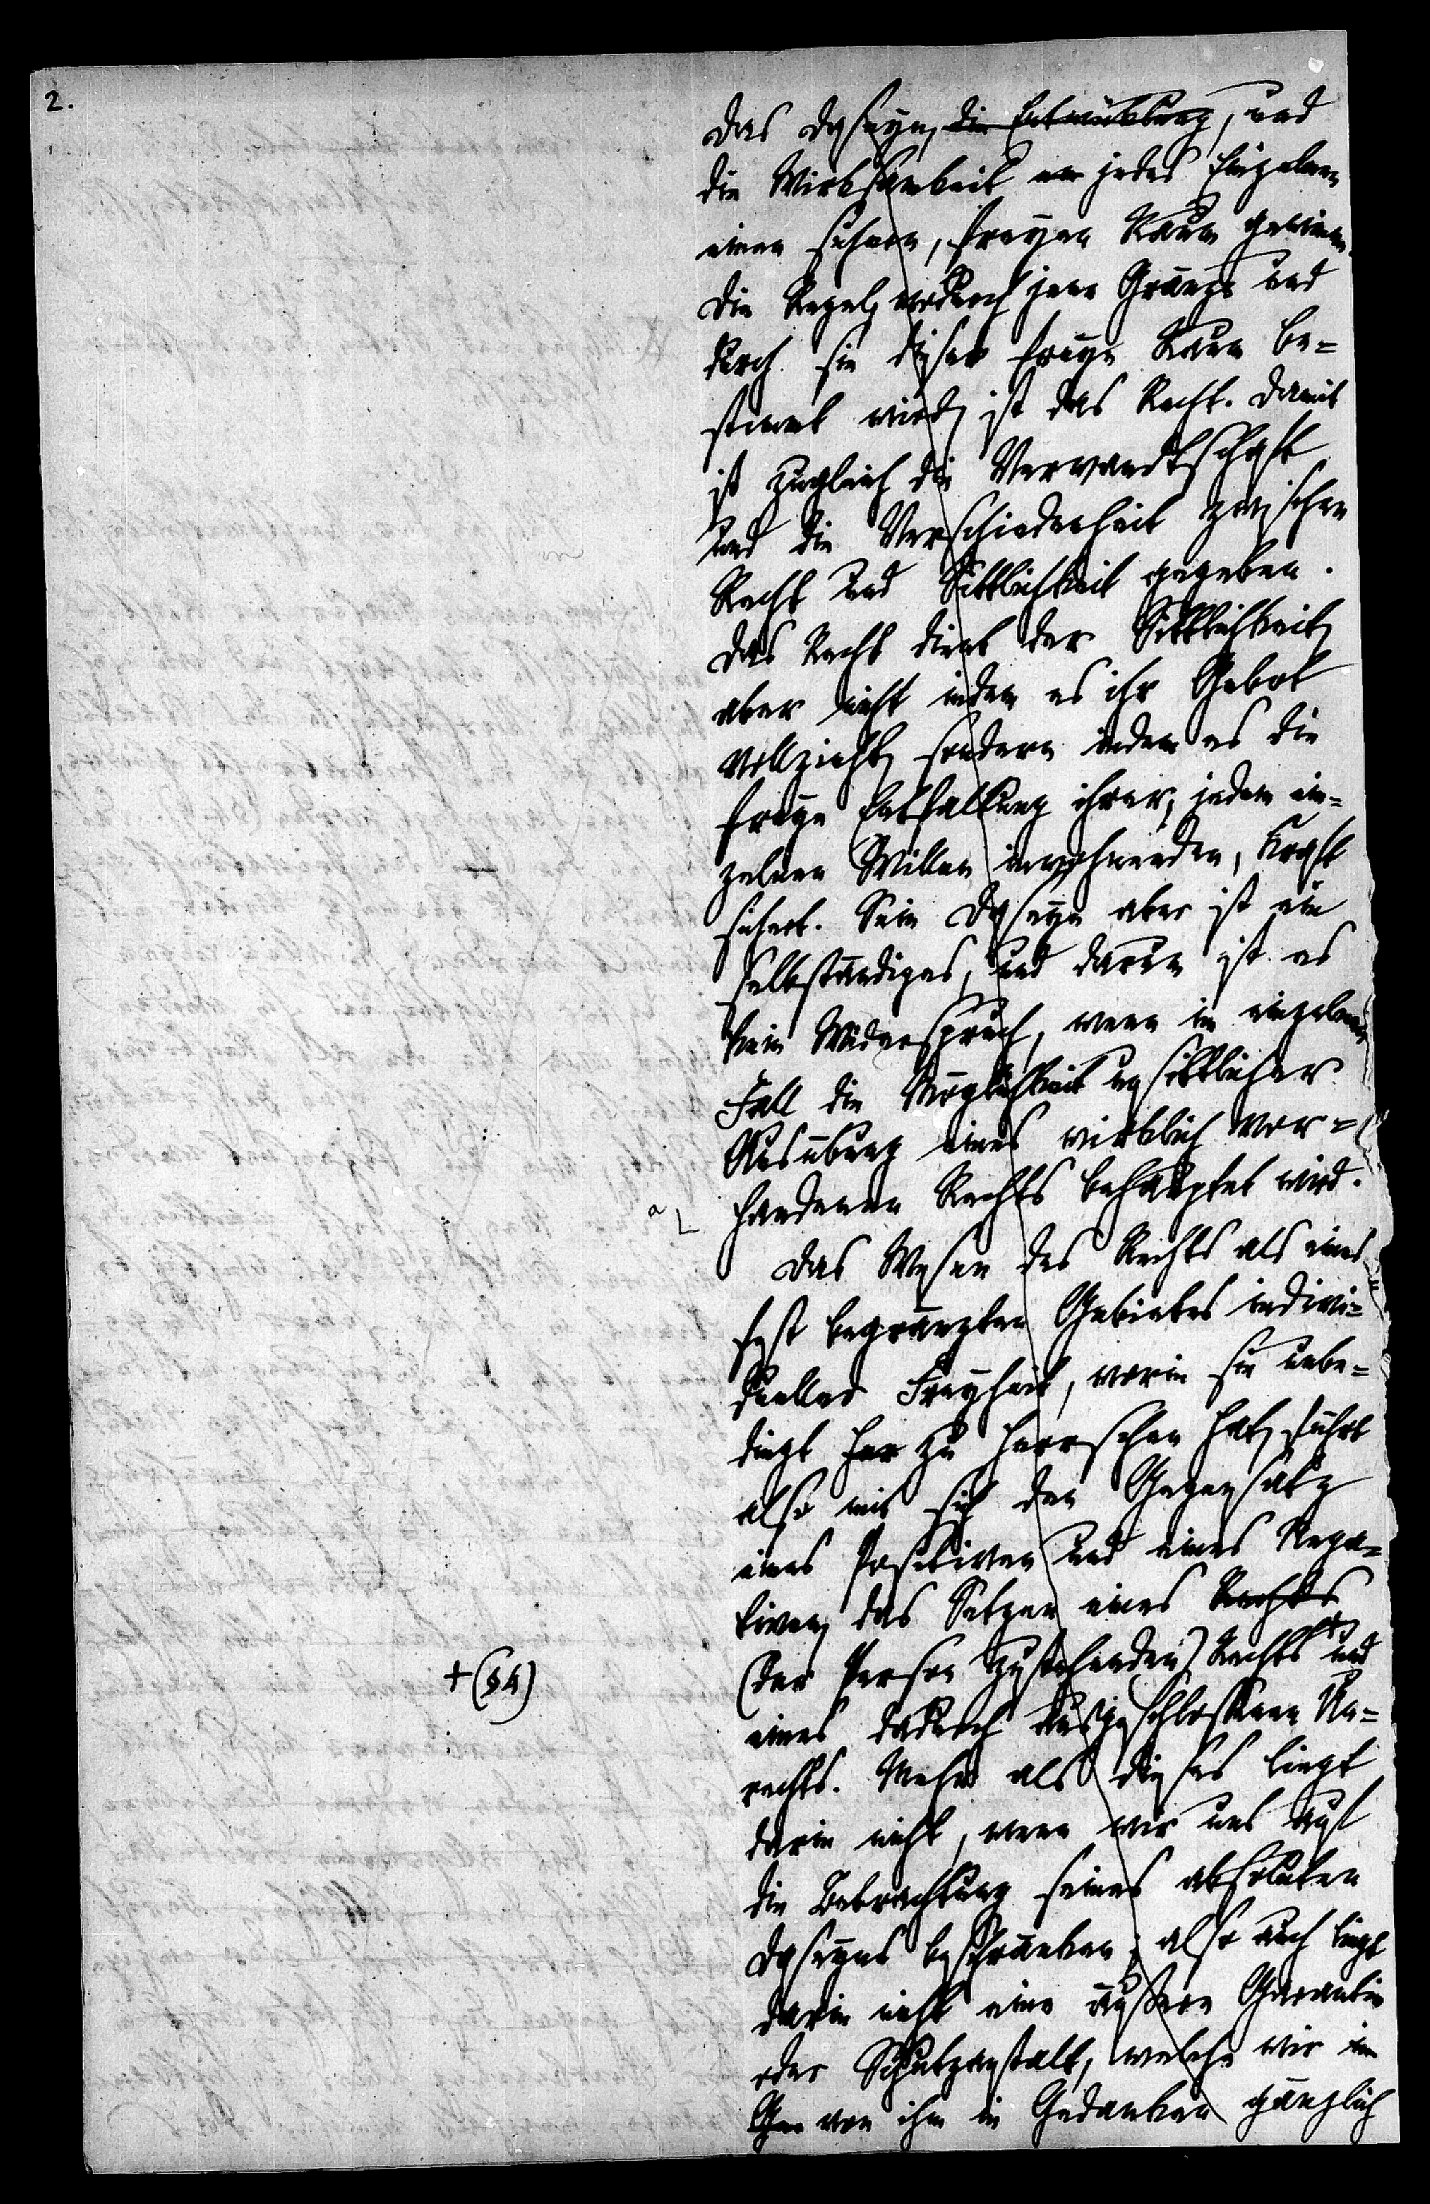 2.
das Daseyn, die Entwicklung, und
die Wirksamkeit jedes Einzelnen
einen sichern, freyen Raum gewinne.
Die Regel, wodurch jene Gränze und
durch sie dieser freye Raum be=
stimmt wird, ist das Recht. Damit
ist zugleich die Verwandtschaft
und die Verschiedenheit zwischen
Recht und Sittlichkeit gegeben.
Das Recht dient der Sittlichkeit,
aber nicht indem es ihr Gebot
vollzieht, sondern indem es die
freye Entfaltung ihrer, jedem ein=
zelnen Willen inwohnenden, Kraft
sichert. Sein Daseyn aber ist ein
selbständiges, und darum ist es
kein Widerspruch, wenn im einzelnen
Fall die Möglichkeit unsittlicher
Ausübung eines wirklich vor=
handenen Rechts behauptet wird.
Das Wesen des Rechts als eines
fest begränzten Gebietes indivi=
dueller Freyheit, worin sie unbe=
dingt zu herrschen hat, führt
also mit sich den Gegensatz
eines Positiven und eines Nega=
tiven, das Setzen eines Rechts
(der Person zustehenden) Rechts + und
+ (§4)
eines dadurch ausgeschlossenen Un=
rechts. Mehr als dieses liegt
darin nicht, wenn wir uns auf
die Betrachtung seines absoluten
Daseyns beschränken; also auch liegt
darin nicht eine äußere Garantie
oder Schutzanstalt, welche wir im
von ihm in Gedanken gänzlich